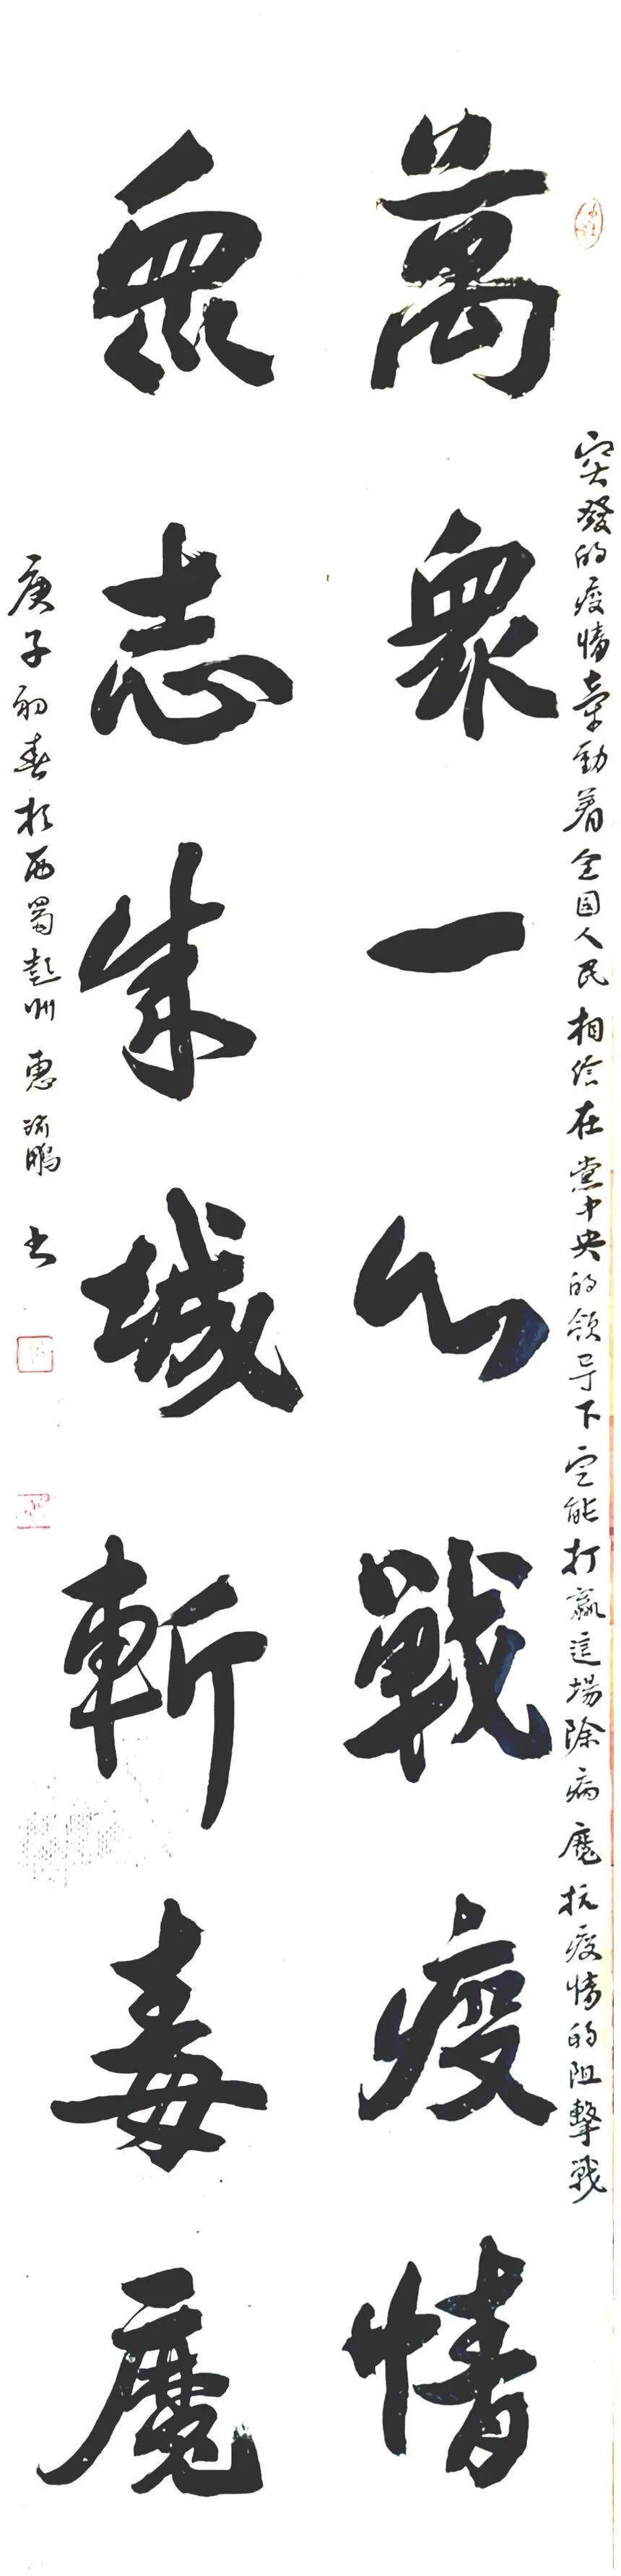 突發的疫情牽動着全国人民相信在党中央的领导下定能打赢這場除病魔抗疫情的阻擊戰
萬衆一心戰疫情
衆志成城斬毒魔
庚子初春於西蜀彭州惠鵬书